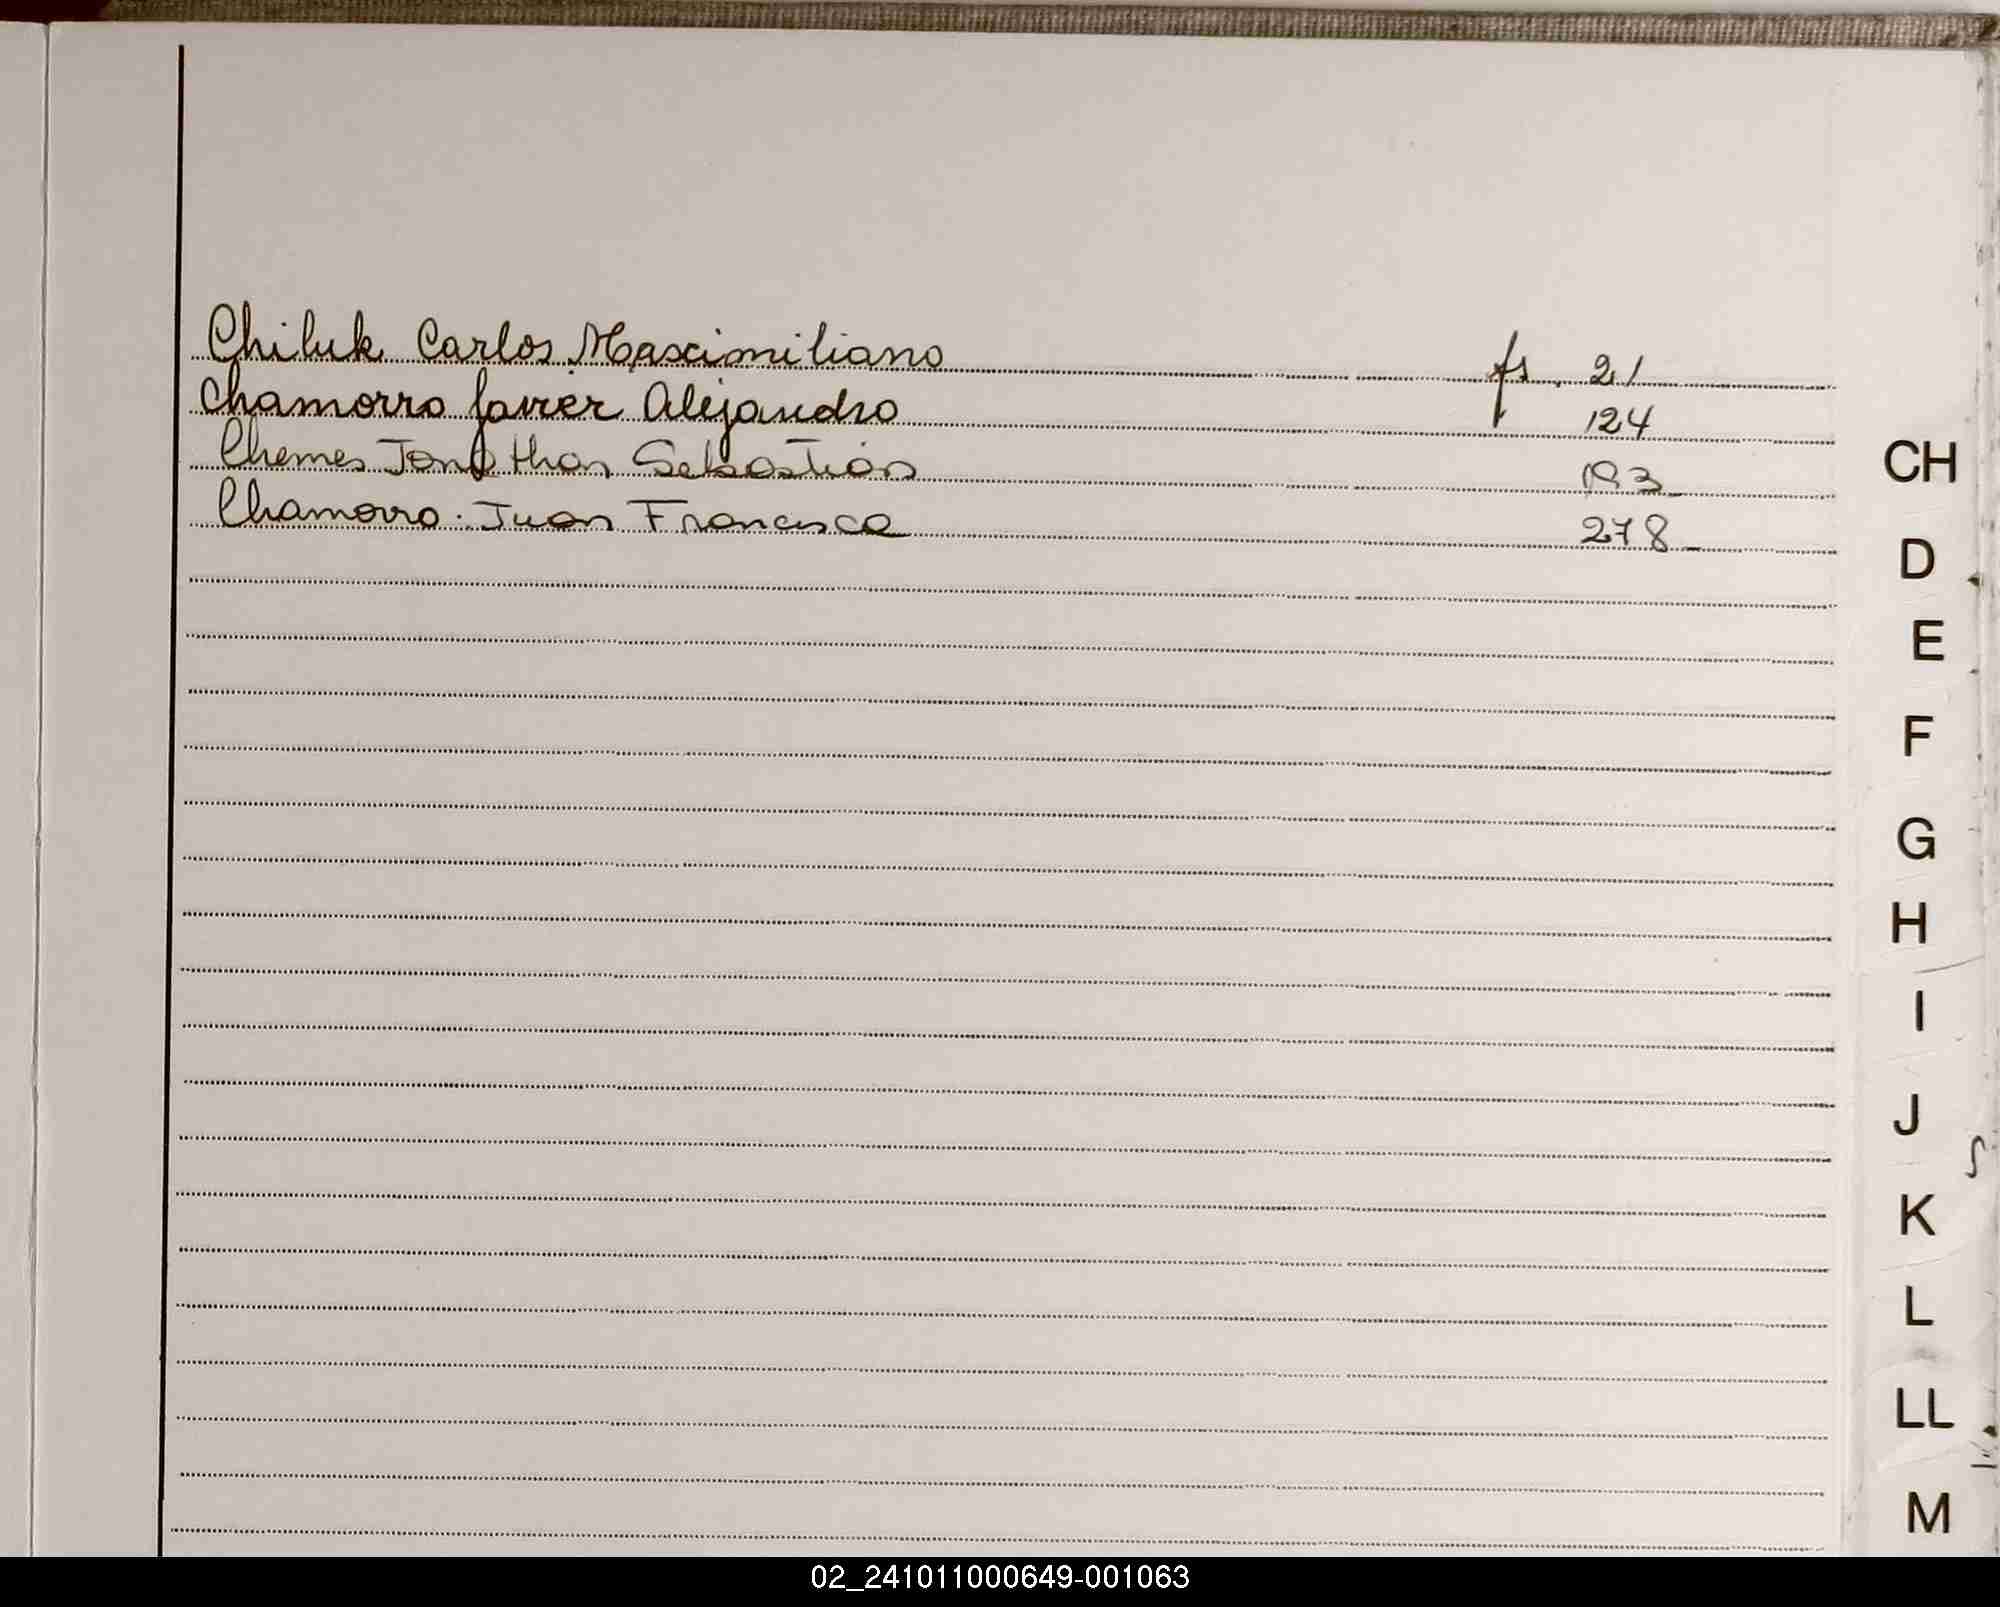 Chiluk Carlos Maximiliano fs. 21
Chamorro Javier Alejandro 124
Chemes Jonathan Sebastián 193
Chamorro. Juan Francisco 278
CH
D
E
F
G
H
I
J
K
L
LL
M
02_241011000649-001063